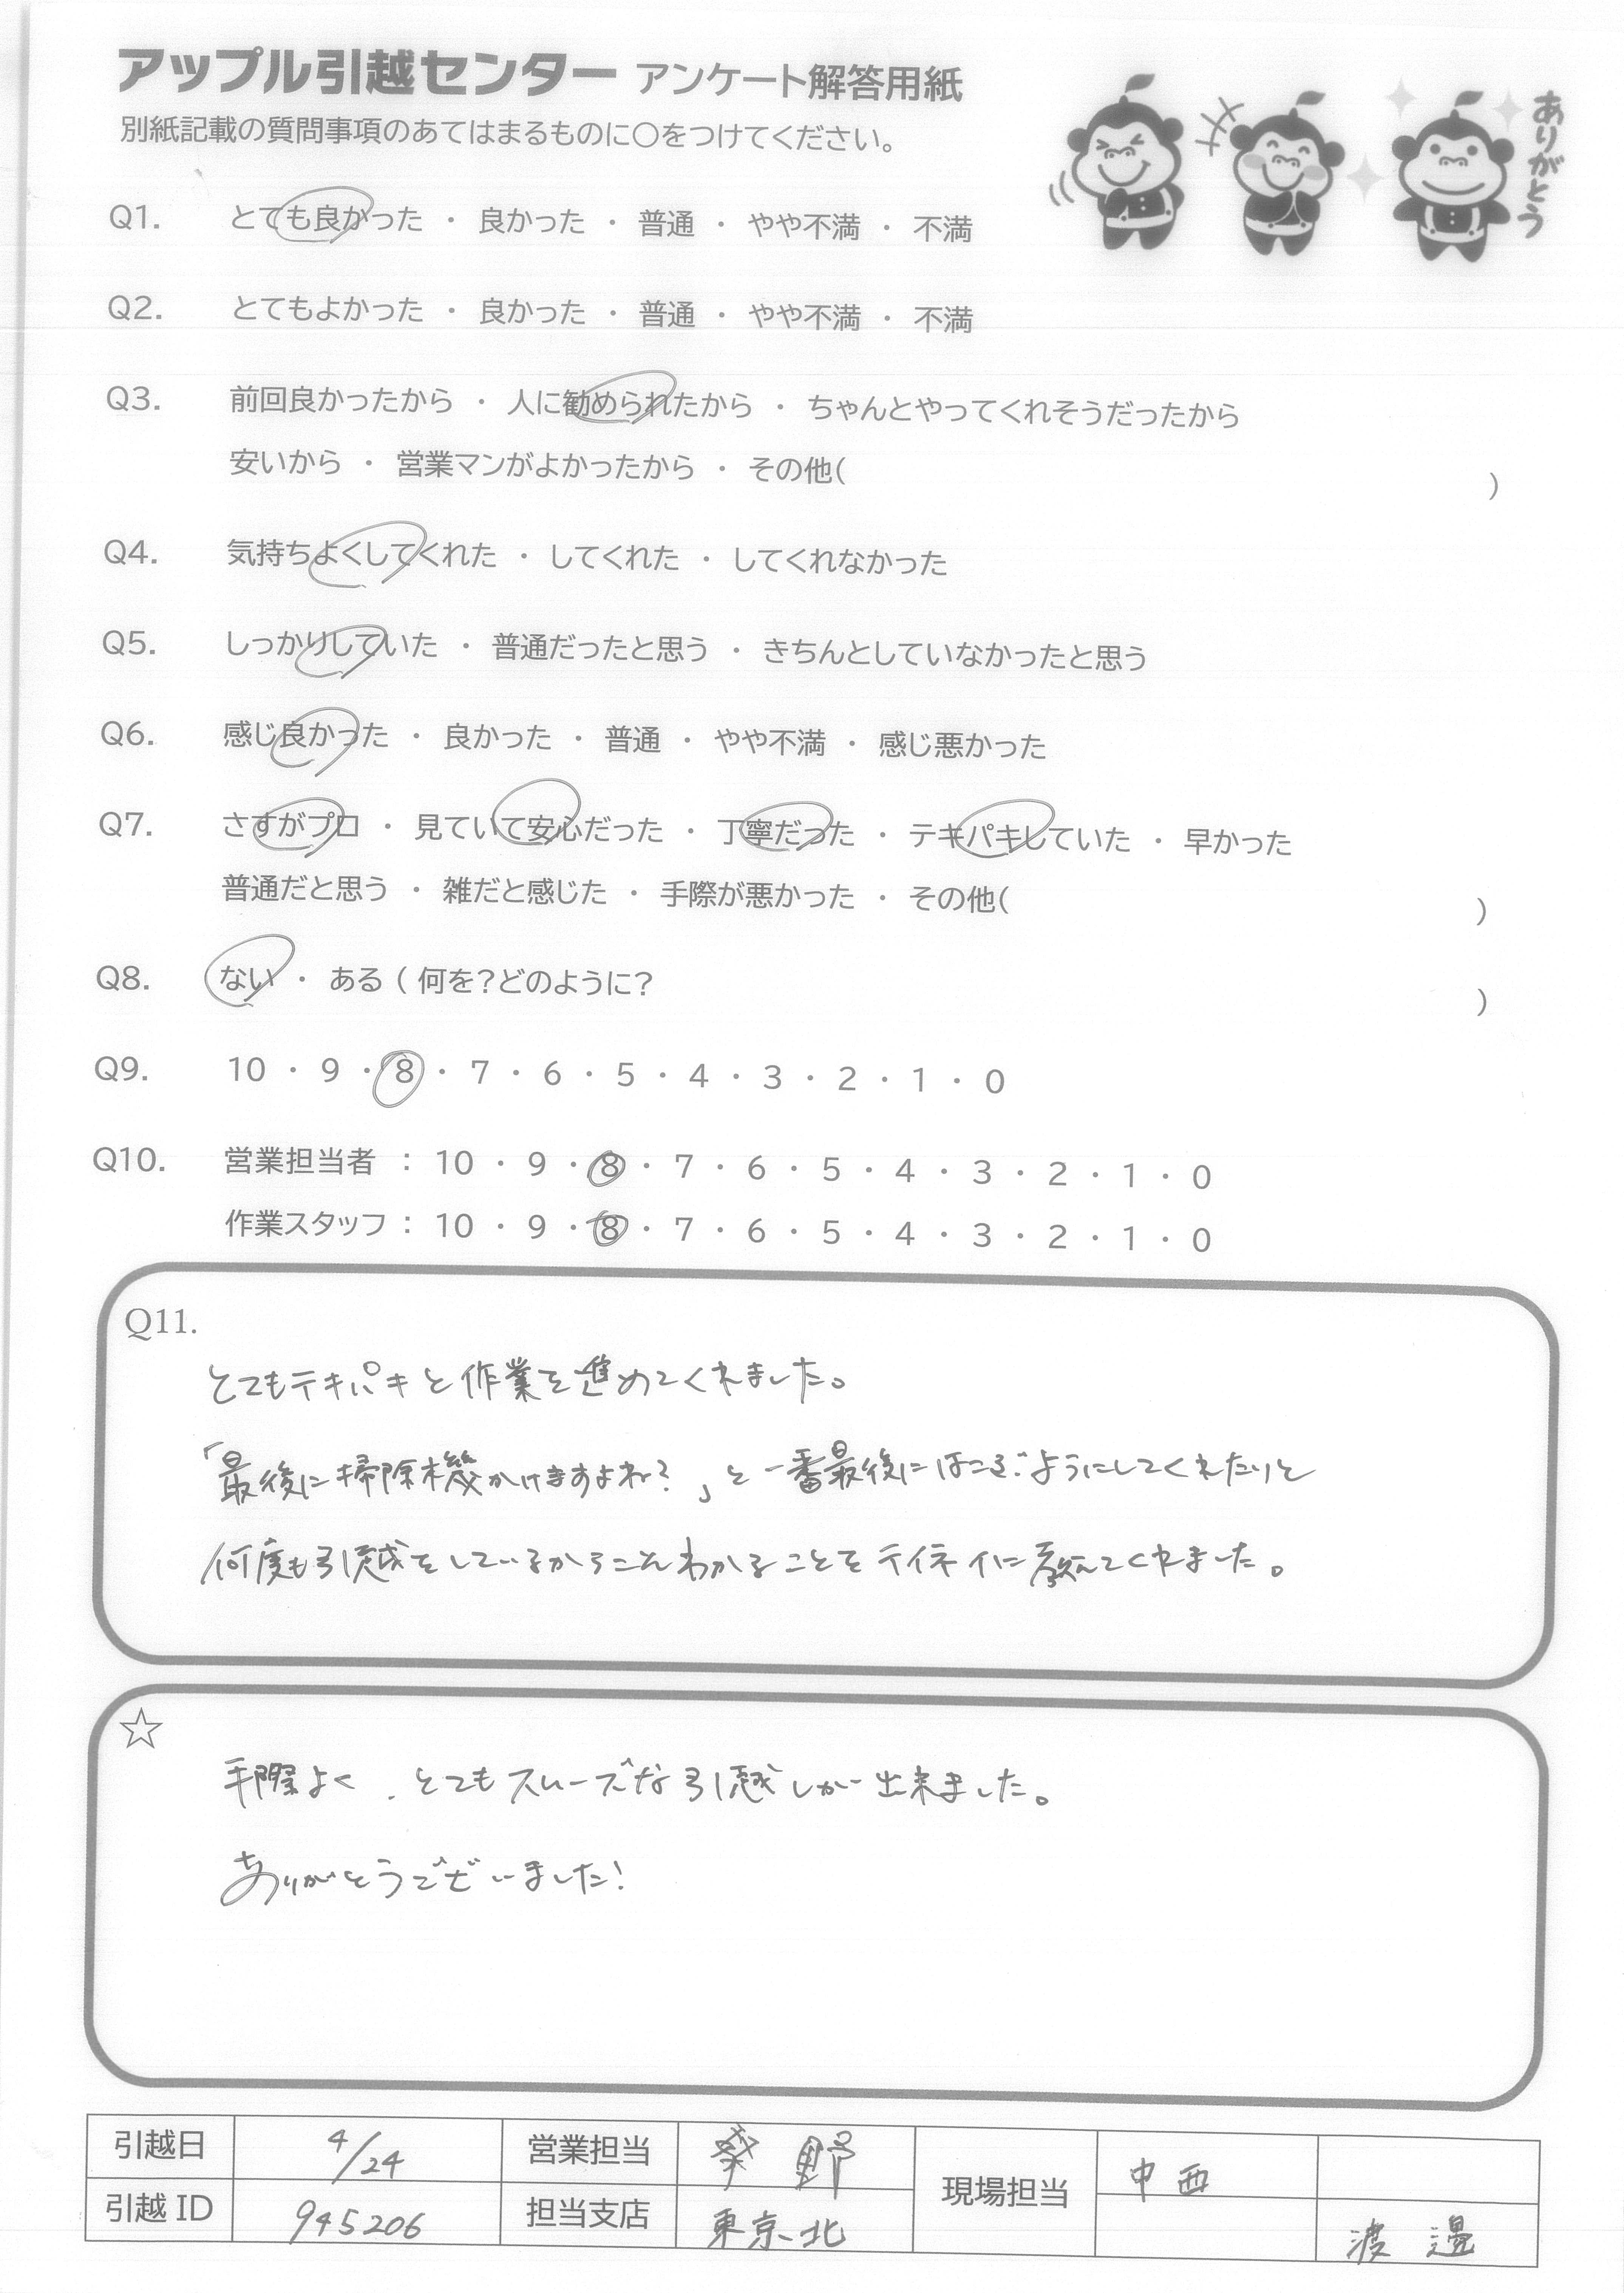 アップル引越センター アンケート解答用紙
別紙記載の質問事項のあてはまるものに○をつけてください。
ありがとう
Q1. とても良かった ・ 良かった ・ 普通 ・ やや不満 ・ 不満
Q2. とてもよかった ・ 良かった ・ 普通 ・ やや不満 ・ 不満
Q3. 前回良かったから ・ 人に勧められたから ・ ちゃんとやってくれそうだったから
安いから ・ 営業マンがよかったから ・ その他( )
Q4. 気持ちよくしてくれた ・ してくれた ・ してくれなかった
Q5. しっかりしていた ・ 普通だったと思う ・ きちんとしていなかったと思う
Q6. 感じ良かった ・ 良かった ・ 普通 ・ やや不満 ・ 感じ悪かった
Q7. さすがプロ ・ 見ていて安心だった ・ 丁寧だった ・ テキパキしていた ・ 早かった
普通だと思う ・ 雑だと感じた ・ 手際が悪かった ・ その他( )
Q8. ない ・ ある ( 何を?どのように? )
Q9. 10 ・ 9 ・ 8 ・ 7 ・ 6 ・ 5 ・ 4 ・ 3 ・ 2 ・ 1 ・ 0
Q10. 営業担当者 : 10 ・ 9 ・ 8 ・ 7 ・ 6 ・ 5 ・ 4 ・ 3 ・ 2 ・ 1 ・ 0
作業スタッフ : 10 ・ 9 ・ 8 ・ 7 ・ 6 ・ 5 ・ 4 ・ 3 ・ 2 ・ 1 ・ 0
Q11.
とてもテキパキと作業を進めてくれました。
「最後に掃除機かけますよね?」と一番最後にはこぶようにしてくれたりと
何度も引越をしているからこそわかることをテイネイに教えてくれました。
☆
手際よく、とてもスムーズな引越しが出来ました。
ありがとうございました!
引越日 4/24 営業担当 桑野 現場担当 中西
引越ID 945206 担当支店 東京北 渡邊